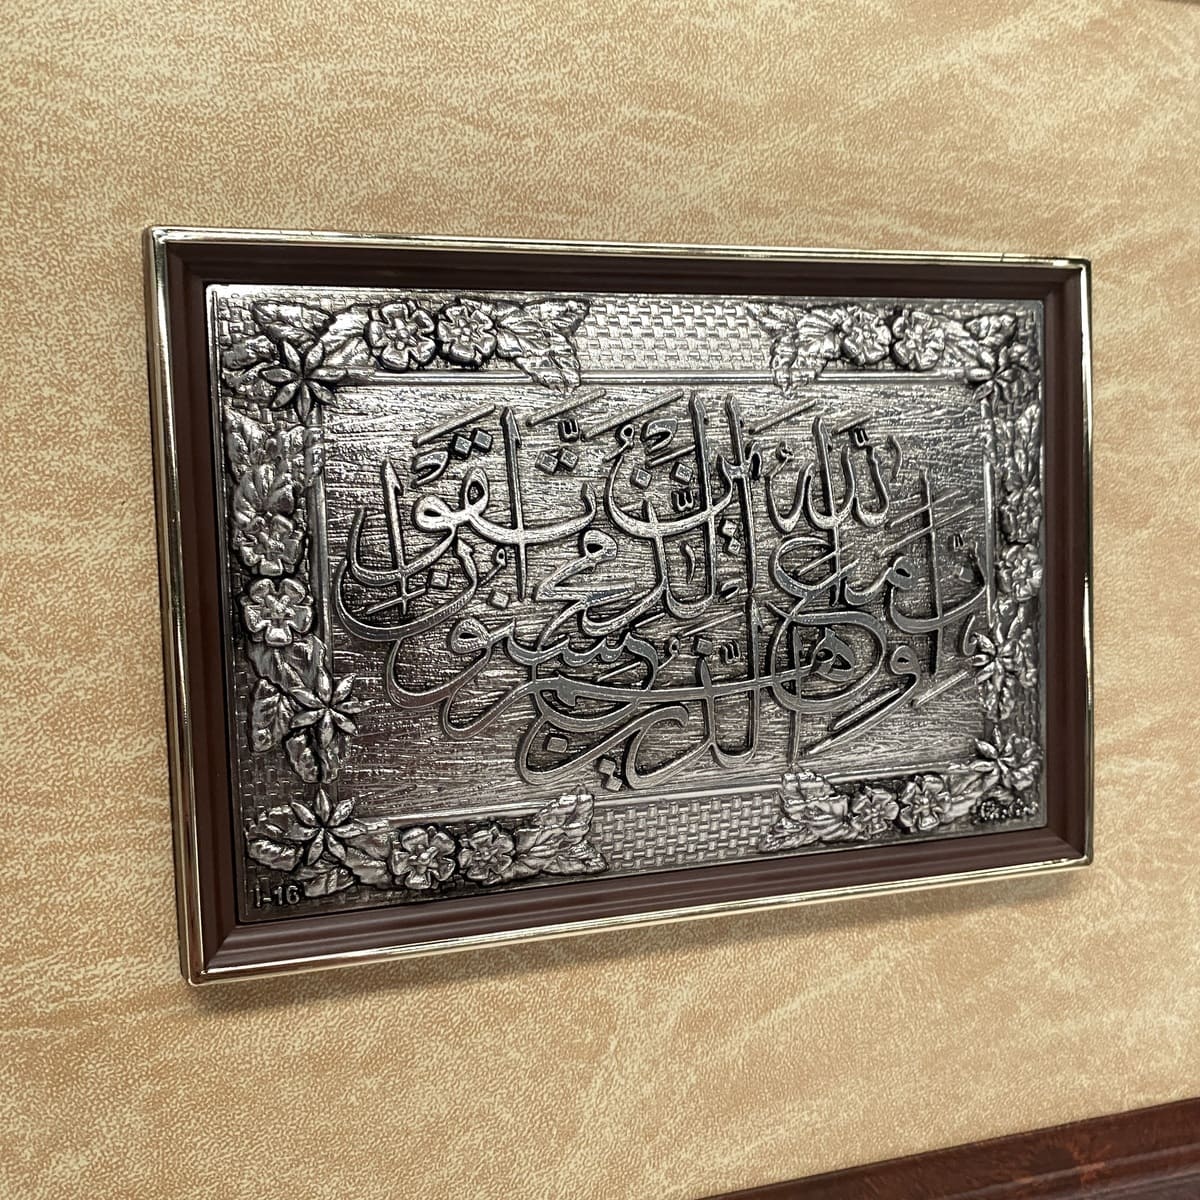 إن الله مع الذين اتقوا
والذين هم محسنون
I-16